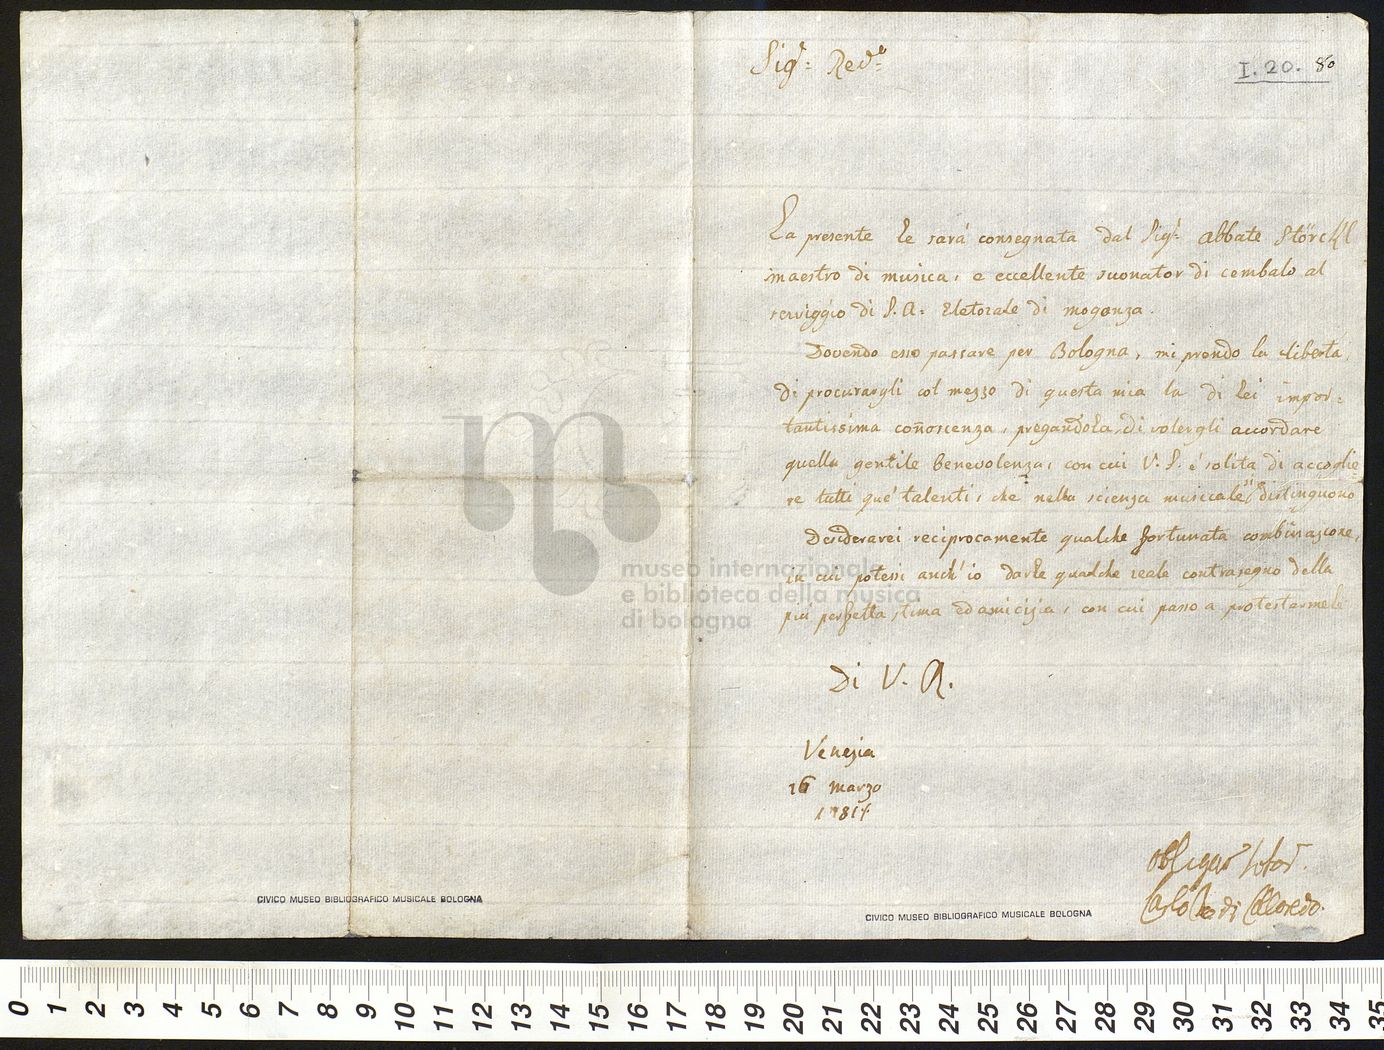 I. 20. 80
Sig.r: Red.e:
La presente le sarà consegnata dal Sig.r: abbate Störckl
maestro di musica, e eccellente suonator di cembalo al
serviggio di S. A: Eletorale di moganza.
Dovendo esso passare per Bologna, mi prendo la libertà,
di procurargli col mezzo di questa mia la di lei impor=
tantissima coñoscenza, pregandola, di volergli accordare
quella gentile benevolenza, con cui V. S. è solita di accoglie=
re tutti que' talenti, che nella scienza musicale si distinguono
Desiderarei reciprocamente qualche fortunata combinazione,
in cui potessi anch'io darle qualche reale contrasegno della
più perfetta stima ed amicizia, con cui passo a protestarmele
Di V. R.
Venezia
16 marzo
1781
Carlo di Colloredo
CIVICO MUSEO BIBLIOGRAFICO MUSICALE BOLOGNA
CIVICO MUSEO BIBLIOGRAFICO MUSICALE BOLOGNA
museo internazionale
e biblioteca della musica
di bologna
0 1 2 3 4 5 6 7 8 9 10 11 12 13 14 15 16 17 18 19 20 21 22 23 24 25 26 27 28 29 30 31 32 33 34 35